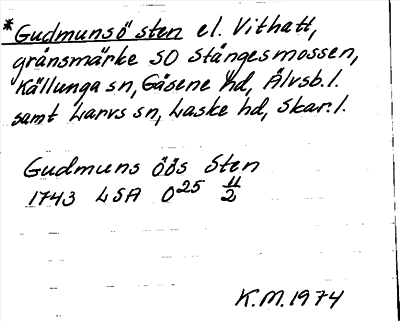 *Gudmunsö sten el. Vithatt,
gränsmärke SO Stångesmossen,
Källunga sn, Gäsene hd, Älvsb. l.
samt Larvs sn, Laske hd, Skar. l.
Gudmuns öös Sten
1743 LSA O25 11/2
K.M. 1974